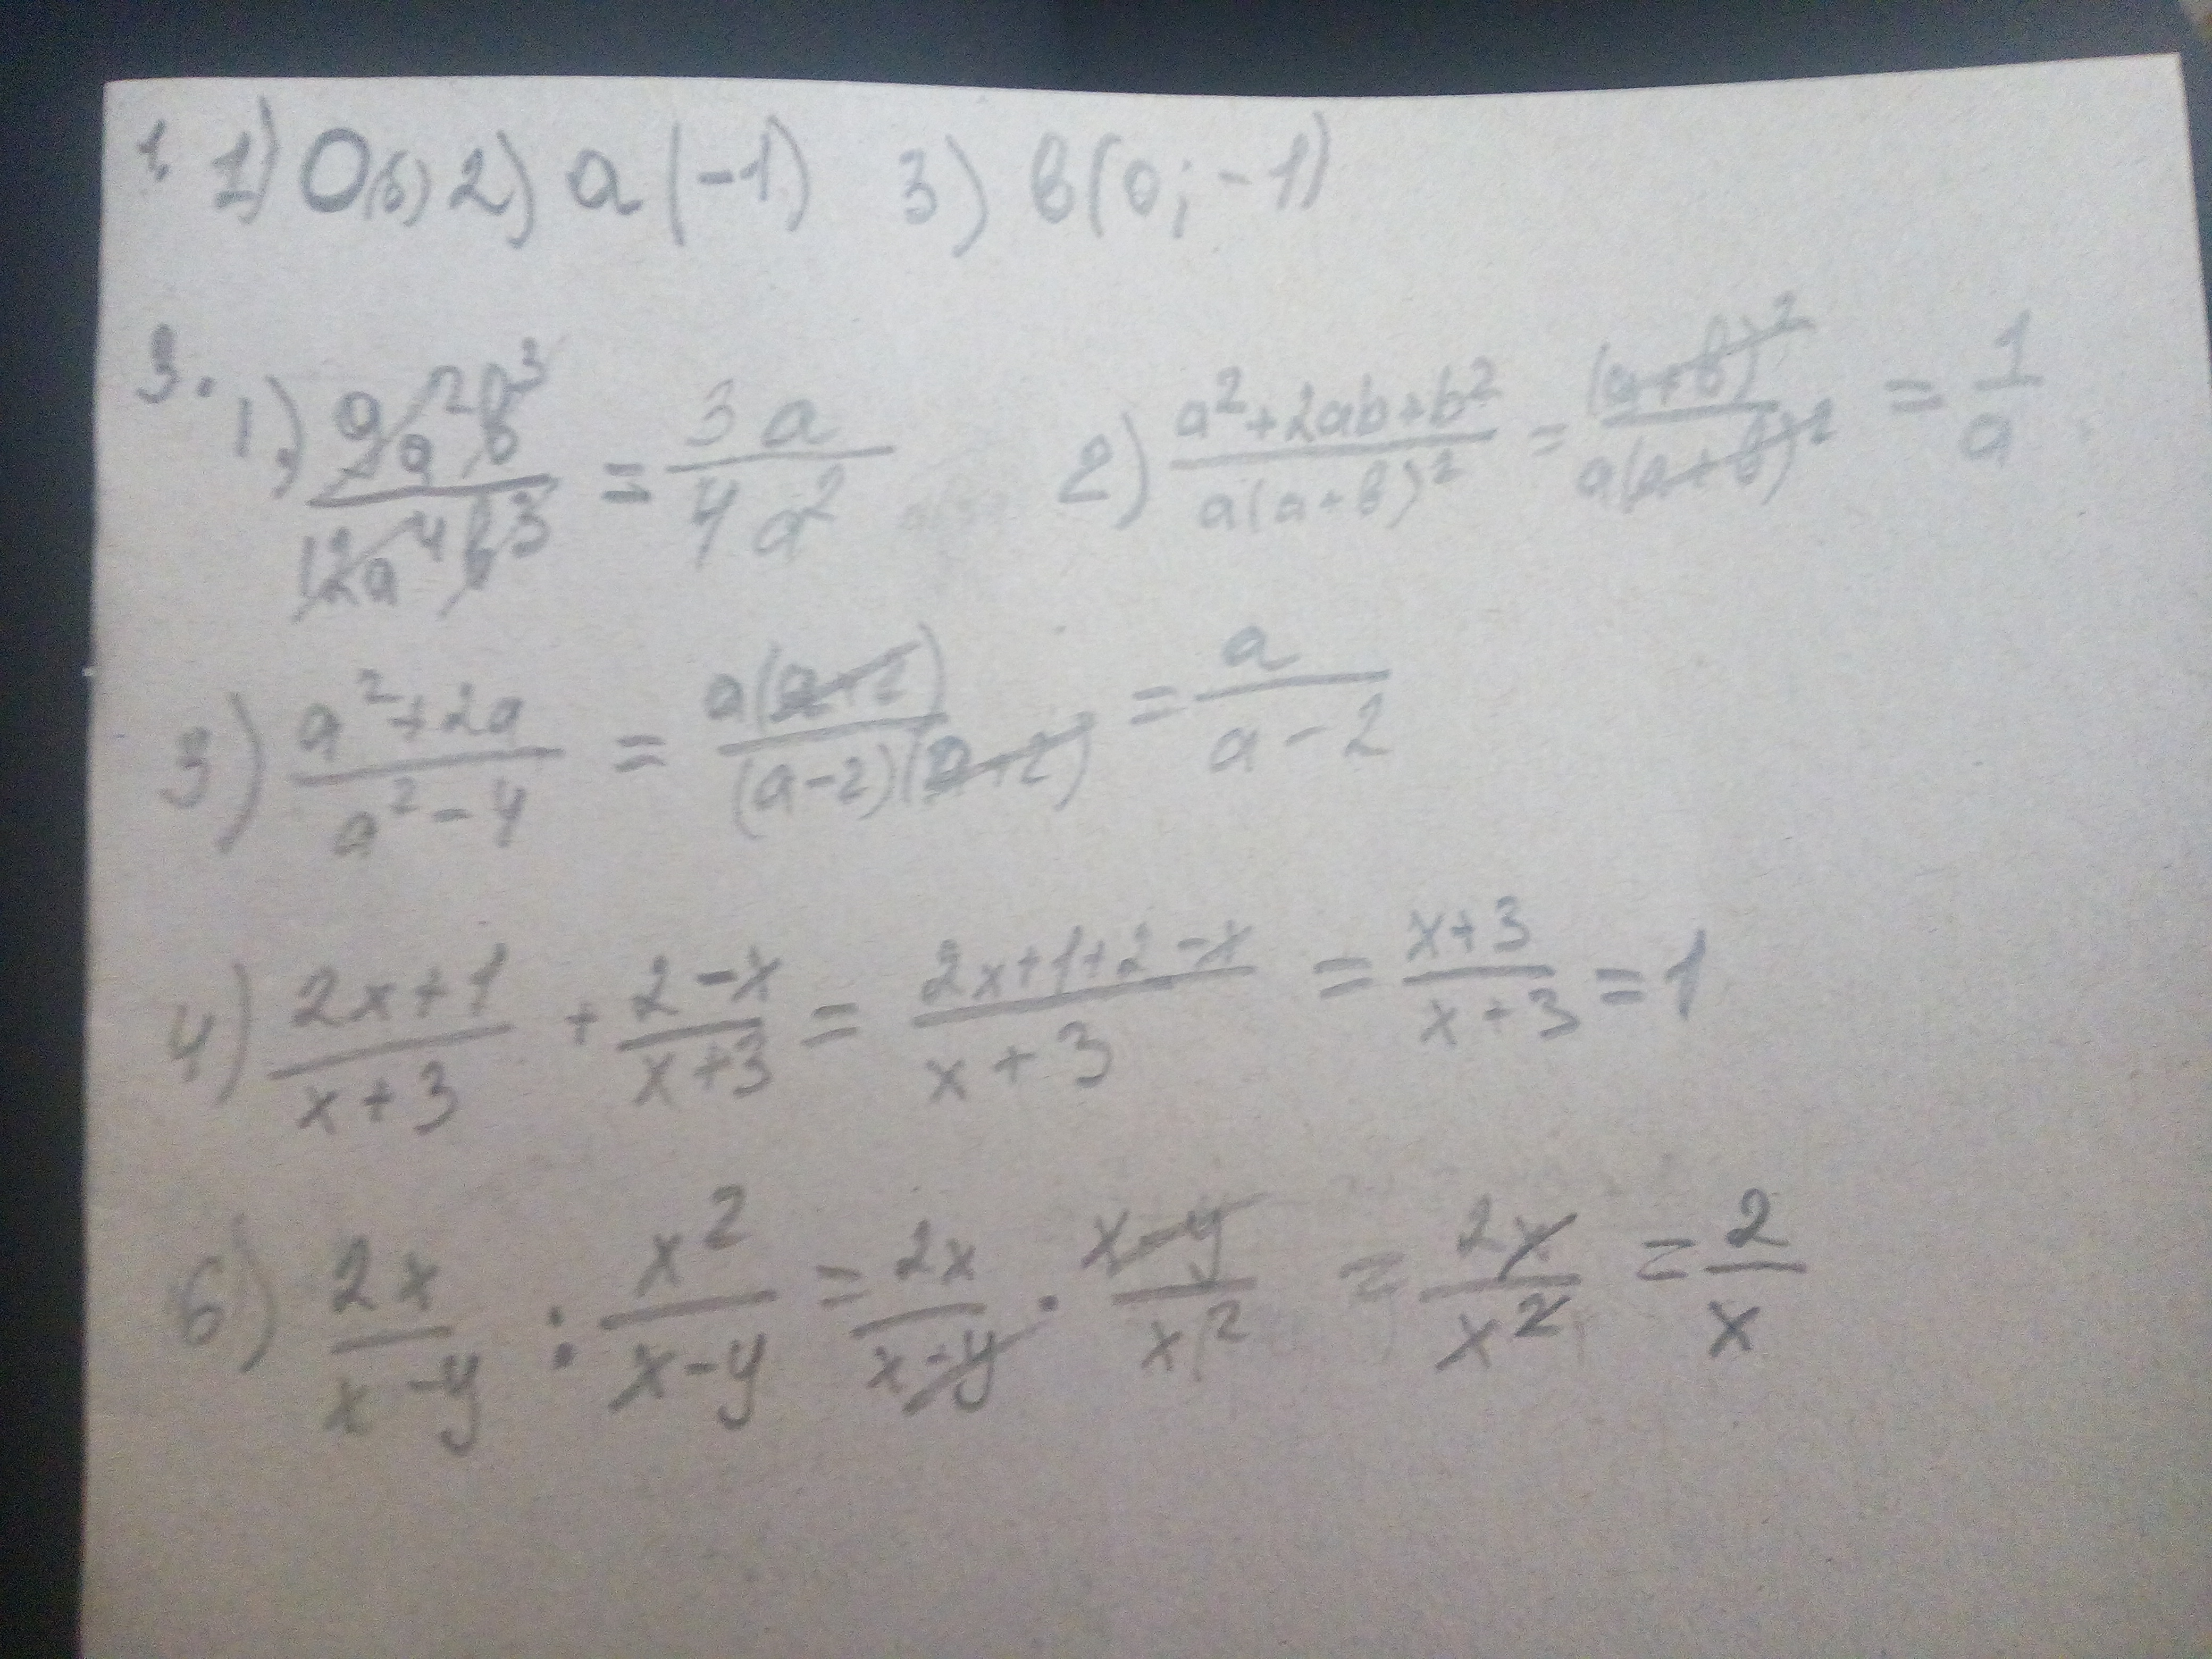 1. 1) 0(б) 2) а (-1) 3) в(0; -1)
3. 1) 9a²b³/12a⁴b³ = 3a/4a² 2) a²+2ab+b²/a(a+b)² = (a+b)²/a(a+b)² = 1/a
3) a²+2a/a²-4 = a(a+2)/(a-2)(a+2) = a/a-2
4) 2x+1/x+3 + 2-x/x+3 = 2x+1+2-x/x+3 = x+3/x+3 = 1
6) 2x/x-y : x²/x-y = 2x/x-y · x-y/x² = 2x/x² = 2/x